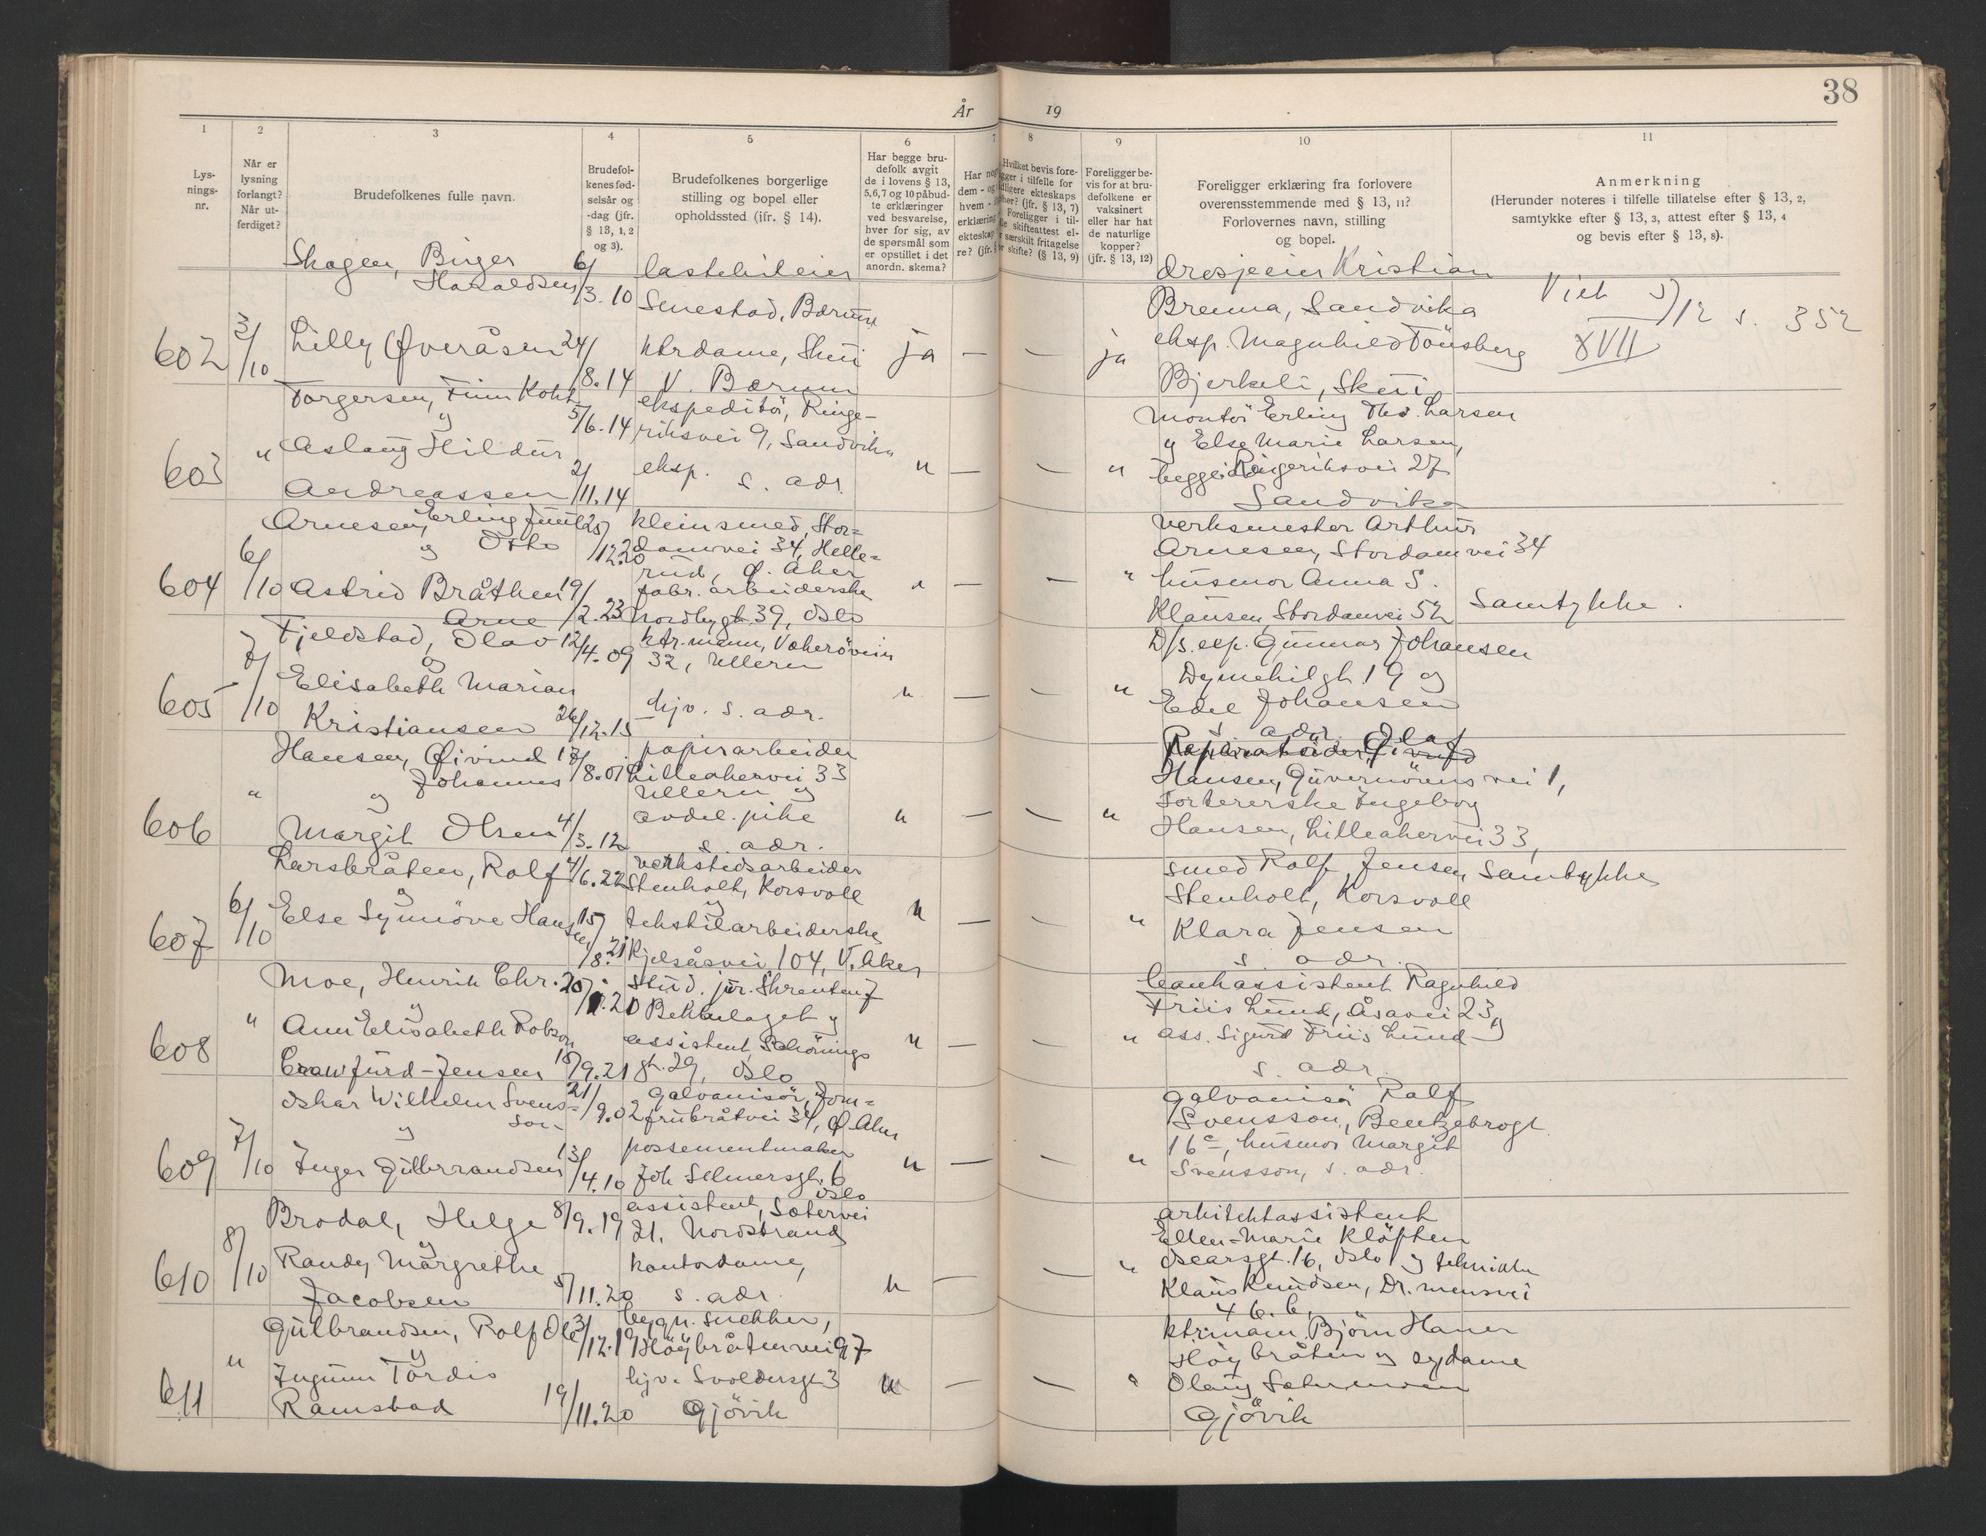 38
År 19
1
2
3
4
5
6
7
8
9
10
11
Lys-
nings-
nr.
Når er
lysning
forlangt?
Når ut-
ferdiget?
Brudefolkenes fulle navn.
Brudefol-
kenes fød-
selsår og
-dag (jfr.
§ 13, 1, 2
og 3).
Brudefolkenes borgerlige
stilling og bopel eller
opholdssted (jfr. § 14).
Har begge bru-
defolk avgit
de i lovens § 13,
5,6,7 og 10 påbud-
te erklæringer
ved besvarelse,
hver for sig, av
de spørsmål som
er opstillet i det
anordn. skema?
Har no
dem - og
hvem -
erklæring
ekteskap
re? (jfr. §
Hvilket bevis fore-
gger i tilfelle for
dligere ekteskaps
hør? (jfr. § 13, 7)
Foreligger i til-
le skifteattest el-
r særskilt fritagelse
r skifte? (§ 13, 9)
Foreligger be-
vis for at bru-
defolkene er
vaksinert
eller har hat
de naturlige
kopper?
(jfr. § 13, 12)
Foreligger erklæring fra forlovere
overensstemmende med § 13, 11?
Forlovernes navn, stilling
og bopel.
Anmerkning
(Herunder noteres i tilfelle tillatelse efter § 13, 2,
samtykke efter § 13, 3, attest efter § 13, 4
og bevis efter § 13, 8).
602
3/10
Skogen, Birger
Haraldsen
6/3.10
lastebileier
Smestad, Bærum
Lilly Øveråsen
24/8.14
ktrdame, Skui
V. Bærum
ja — — ja
drosjeeier Kristian
Brenna, Sandvika
eksp. Magnhild Tönsberg
Bjerkeli, Skui
Viet 5/12 s. 352
XVII
603
"
Torgersen, Finn Koht
og
5/6.14
ekspeditör, Ringe-
riksvei 9, Sandvika
Aslaug Hildur
Andreassen
2/11.14
eksp.
s. adr.
" — — "
montör Erling Thv. Larsen
og Else Marie Larsen,
begge Ringeriksvei 27
Sandvika
604
6/10
Arnesen, Erling Juul
og Otto
25/12.20
kleinsmed, Stor-
damvei 34, Helle-
rud, Ø. Aker
Astrid Bråthen
19/2.23
fabr. arbeiderske
Nordbygt. 39, Oslo
" — — "
verksmester Arthur
Arnesen, Stordamvei 34
husmor Anna S.
Klausen, Stordamvei 52
Samtykke.
605
7/10
Arne
Fjeldstad, Olav
og
12/4.09
ktr.mann, Vækerövein
32, Ullern
Elisabeth Marian
Kristiansen
26/12.15
hjv. s. adr.
" — — "
D/s. eksp. Gunnar Johansen
Dymekilgt 19 og
Edel Johansen
s. adr.
606
"
Hansen, Øivind
Johannes
og
17/8.01
papirarbeider
Lilleakervei 33
Ullern og
Margit Olsen
4/3.12
avdel. pike
s. adr.
" — — "
Papirarbeider Olaf
Hansen, Guvernörens vei 1,
Sortererske Ingeborg
Hansen, Lilleakervei 33,
607
6/10
Larsbråten, Rolf
og
4/6.22
verkstedsarbeider
Stenholt, Korsvoll
og
Else Synnöve Hansen
15/8.21
tekstilarbeiderske
Kjelsåsvei 104, V. Aker
" — — "
smed Rolf Jensen,
Stenholt, Korsvoll
Klara Jensen
s. adr.
Samtykke
608
"
Moe, Henrik Chr.
og
stud. jur.
Bekkelaget og
Ann Elisabeth Robson
Crawfurd-Jensen
18/9.21
assistent, Schönings
gt. 29, Oslo
" — — "
bankassistent Ragnhild
Friis Lund, Åsavei 23 og
ass. Sigurd Friis Lund
s. adr.
609
7/10
Oskar Wilhelm Svens-
son
og
21/9.02
galvanisör, Jom-
frubråtvei 34, Ø. Aker
Inger Gulbrandsen
13/4.10
possementmaker
Joh Selmersgt. 6
Oslo
" — — "
galvanisör Rolf
Svensson, Bentzebrogt.
16c, husmor Margit
Svensson, s. adr.
610
8/10
Brodal, Helge
og
8/9.19
assistent, Sætervei
21, Nordstrand
Randy Margrethe
Jacobsen
5/11.20
kontordame,
s. adr.
" — — "
arkitektassistent
Ellen-Marie Klöften
Oscarsgt. 16, Oslo og tekniker
Klaus Knudsen, Dr.
46. b.
611
"
Gulbrandsen, Rolf Ole
og
3/12.19
bygn. snekker,
Höybråtenvei 97
Ingunn Tordis
Ramstad
19/11.20
hjv. Svoldersgt. 3
Gjövik
" — — "
ktrmann Björn Hauer
Höybråten og sydame
Olaug
Gjövik